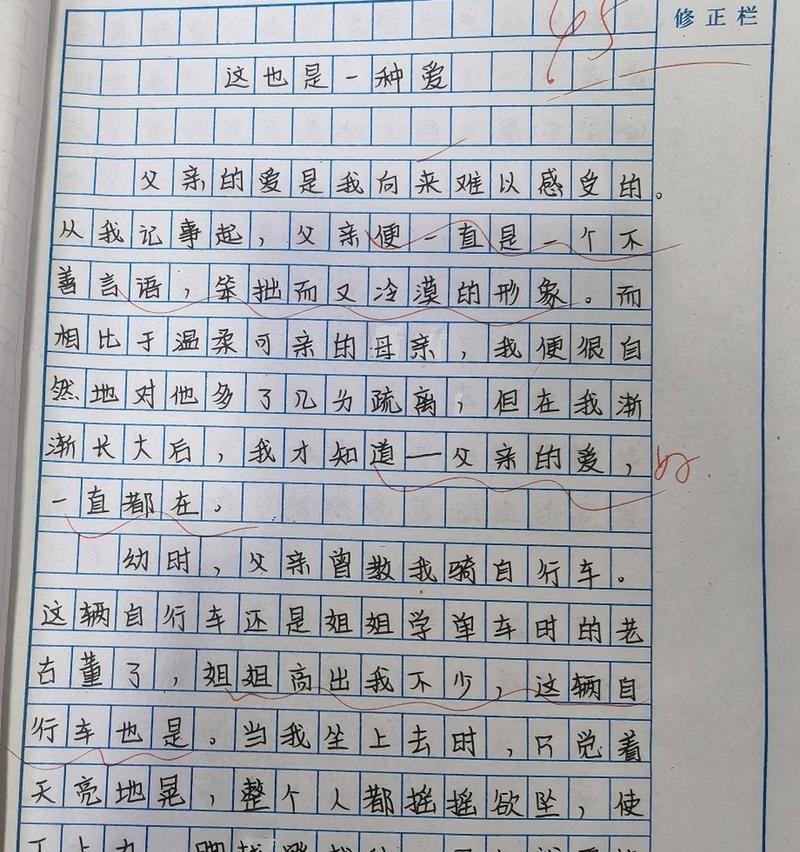 修正栏
45
这也是一种爱
父亲的爱是我向来难以感受的。
从我记事起，父亲便一直是一个不
善言语，笨拙而又冷漠的形象。而
相比于温柔可亲的母亲，我便很自
然地对他多了几为疏离，但在我渐
渐长大后，我才知道—父亲的爱，
好
一直都在。
幼时，父亲曾教我骑自行车。
这辆自行车还是姐姐学单车时的老
古董了，姐姐高出我不少，这辆自
行车也是。当我坐上去时，只觉着
天亮地晃，整个人都摇摇欲坠，使